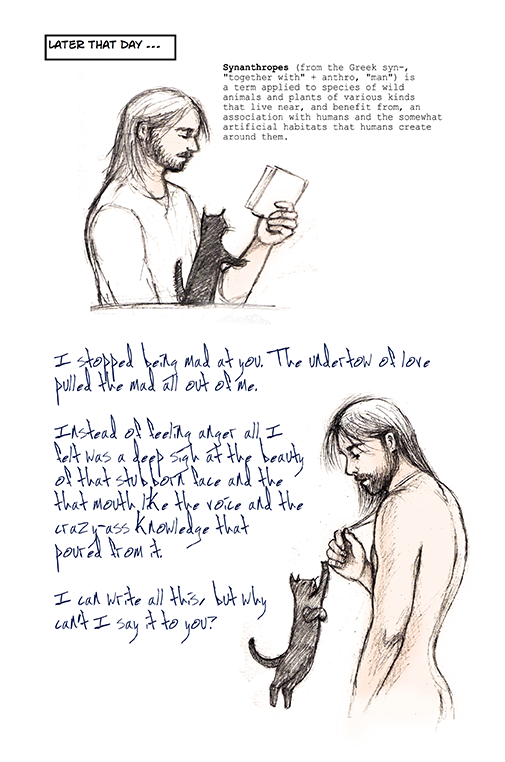 LATER THAT DAY ...
Synanthropes (from the Greek syn-,
"together with" + anthro, "man") is
a term applied to species of wild
animals and plants of various kinds
that live near, and benefit from, an
association with humans and the somewhat
artificial habitats that humans create
around them.
I stopped being mad at you. The undertow of love
pulled the mad all out of me.
Instead of feeling anger all I
felt was a deep sigh at the beauty
of that stubborn face and the
that mouth like the voice and the
crazy-ass knowledge that
poured from it.
I can write all this, but why
can't I say it to you?